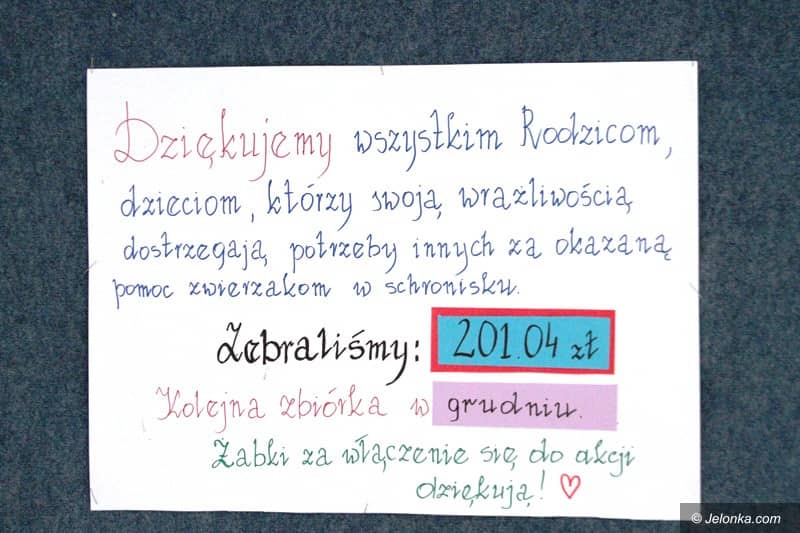 Dziękujemy wszystkim Rodzicom,
dzieciom, którzy swoją wrażliwością
dostrzegają potrzeby innych za okazaną
pomoc zwierzakom w schronisku.
Zebraliśmy: 201.04 zł
Kolejna zbiórka w grudniu.
Żabki za włączenie się do akcji
dziękują! ♡
© Jelonka.com